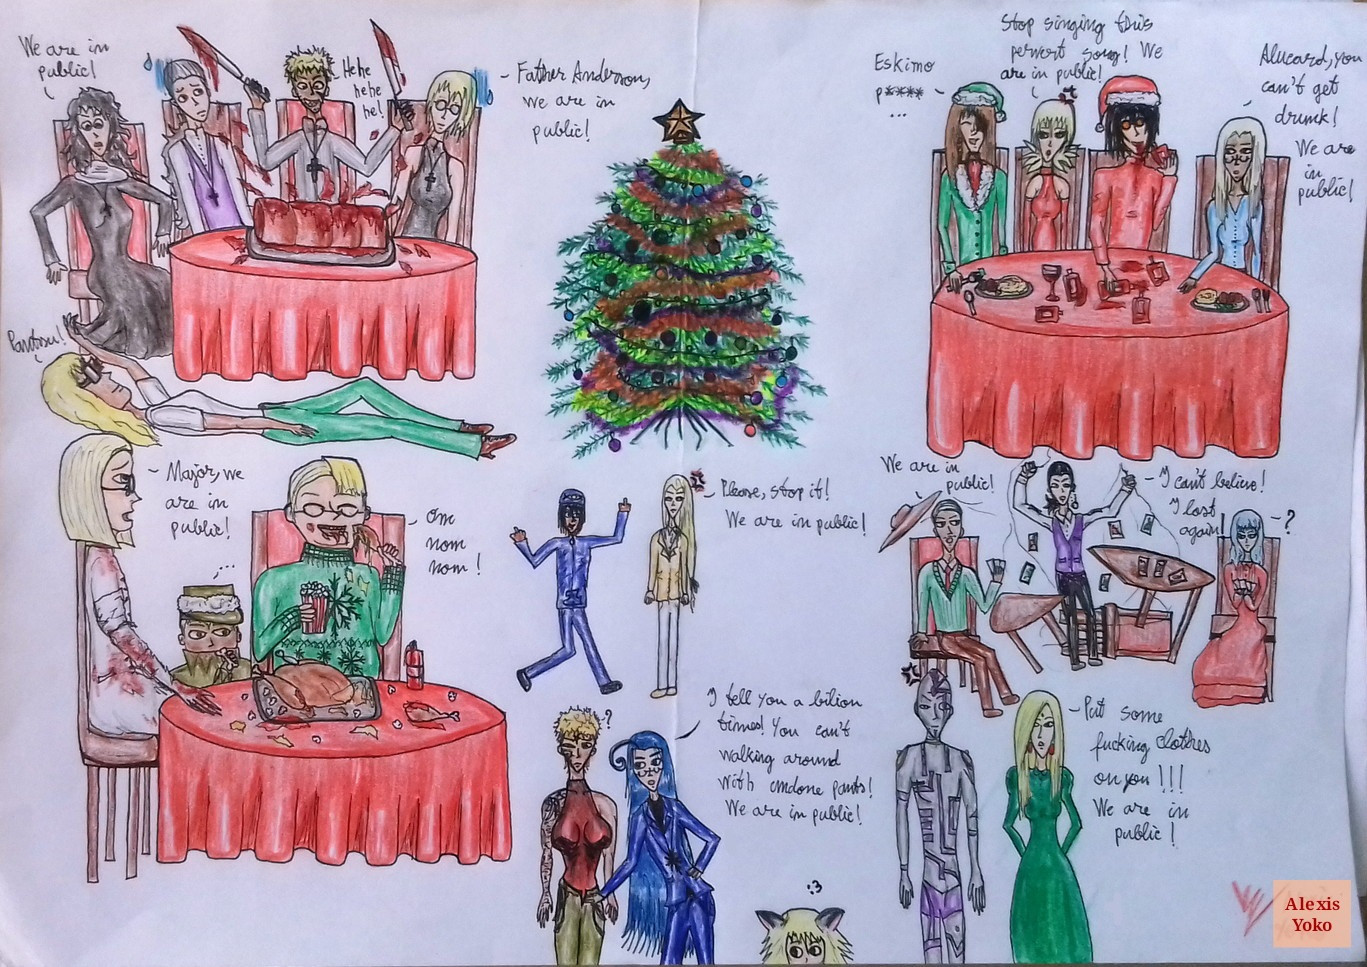 We are in
public!
Hehe
hehe
he!
- Father Anderson,
we are in
public!
Stop singing this
pervert song! We
are in public!
Eskimo
p****
...
Alucard, you
can't get
drunk!
We are
in
public!
Pantsu!
Major, we
are in
public!
...
Om
nom
nom!
Please, stop it!
We are in public!
We are in
public!
I can't believe!
I lost
again!
?
I tell you a bilion
times! You can't
walking around
with undone pants!
We are in public!
?
Put some
fucking clothes
on you!!!
We are in
public!
:3
Alexis
Yoko